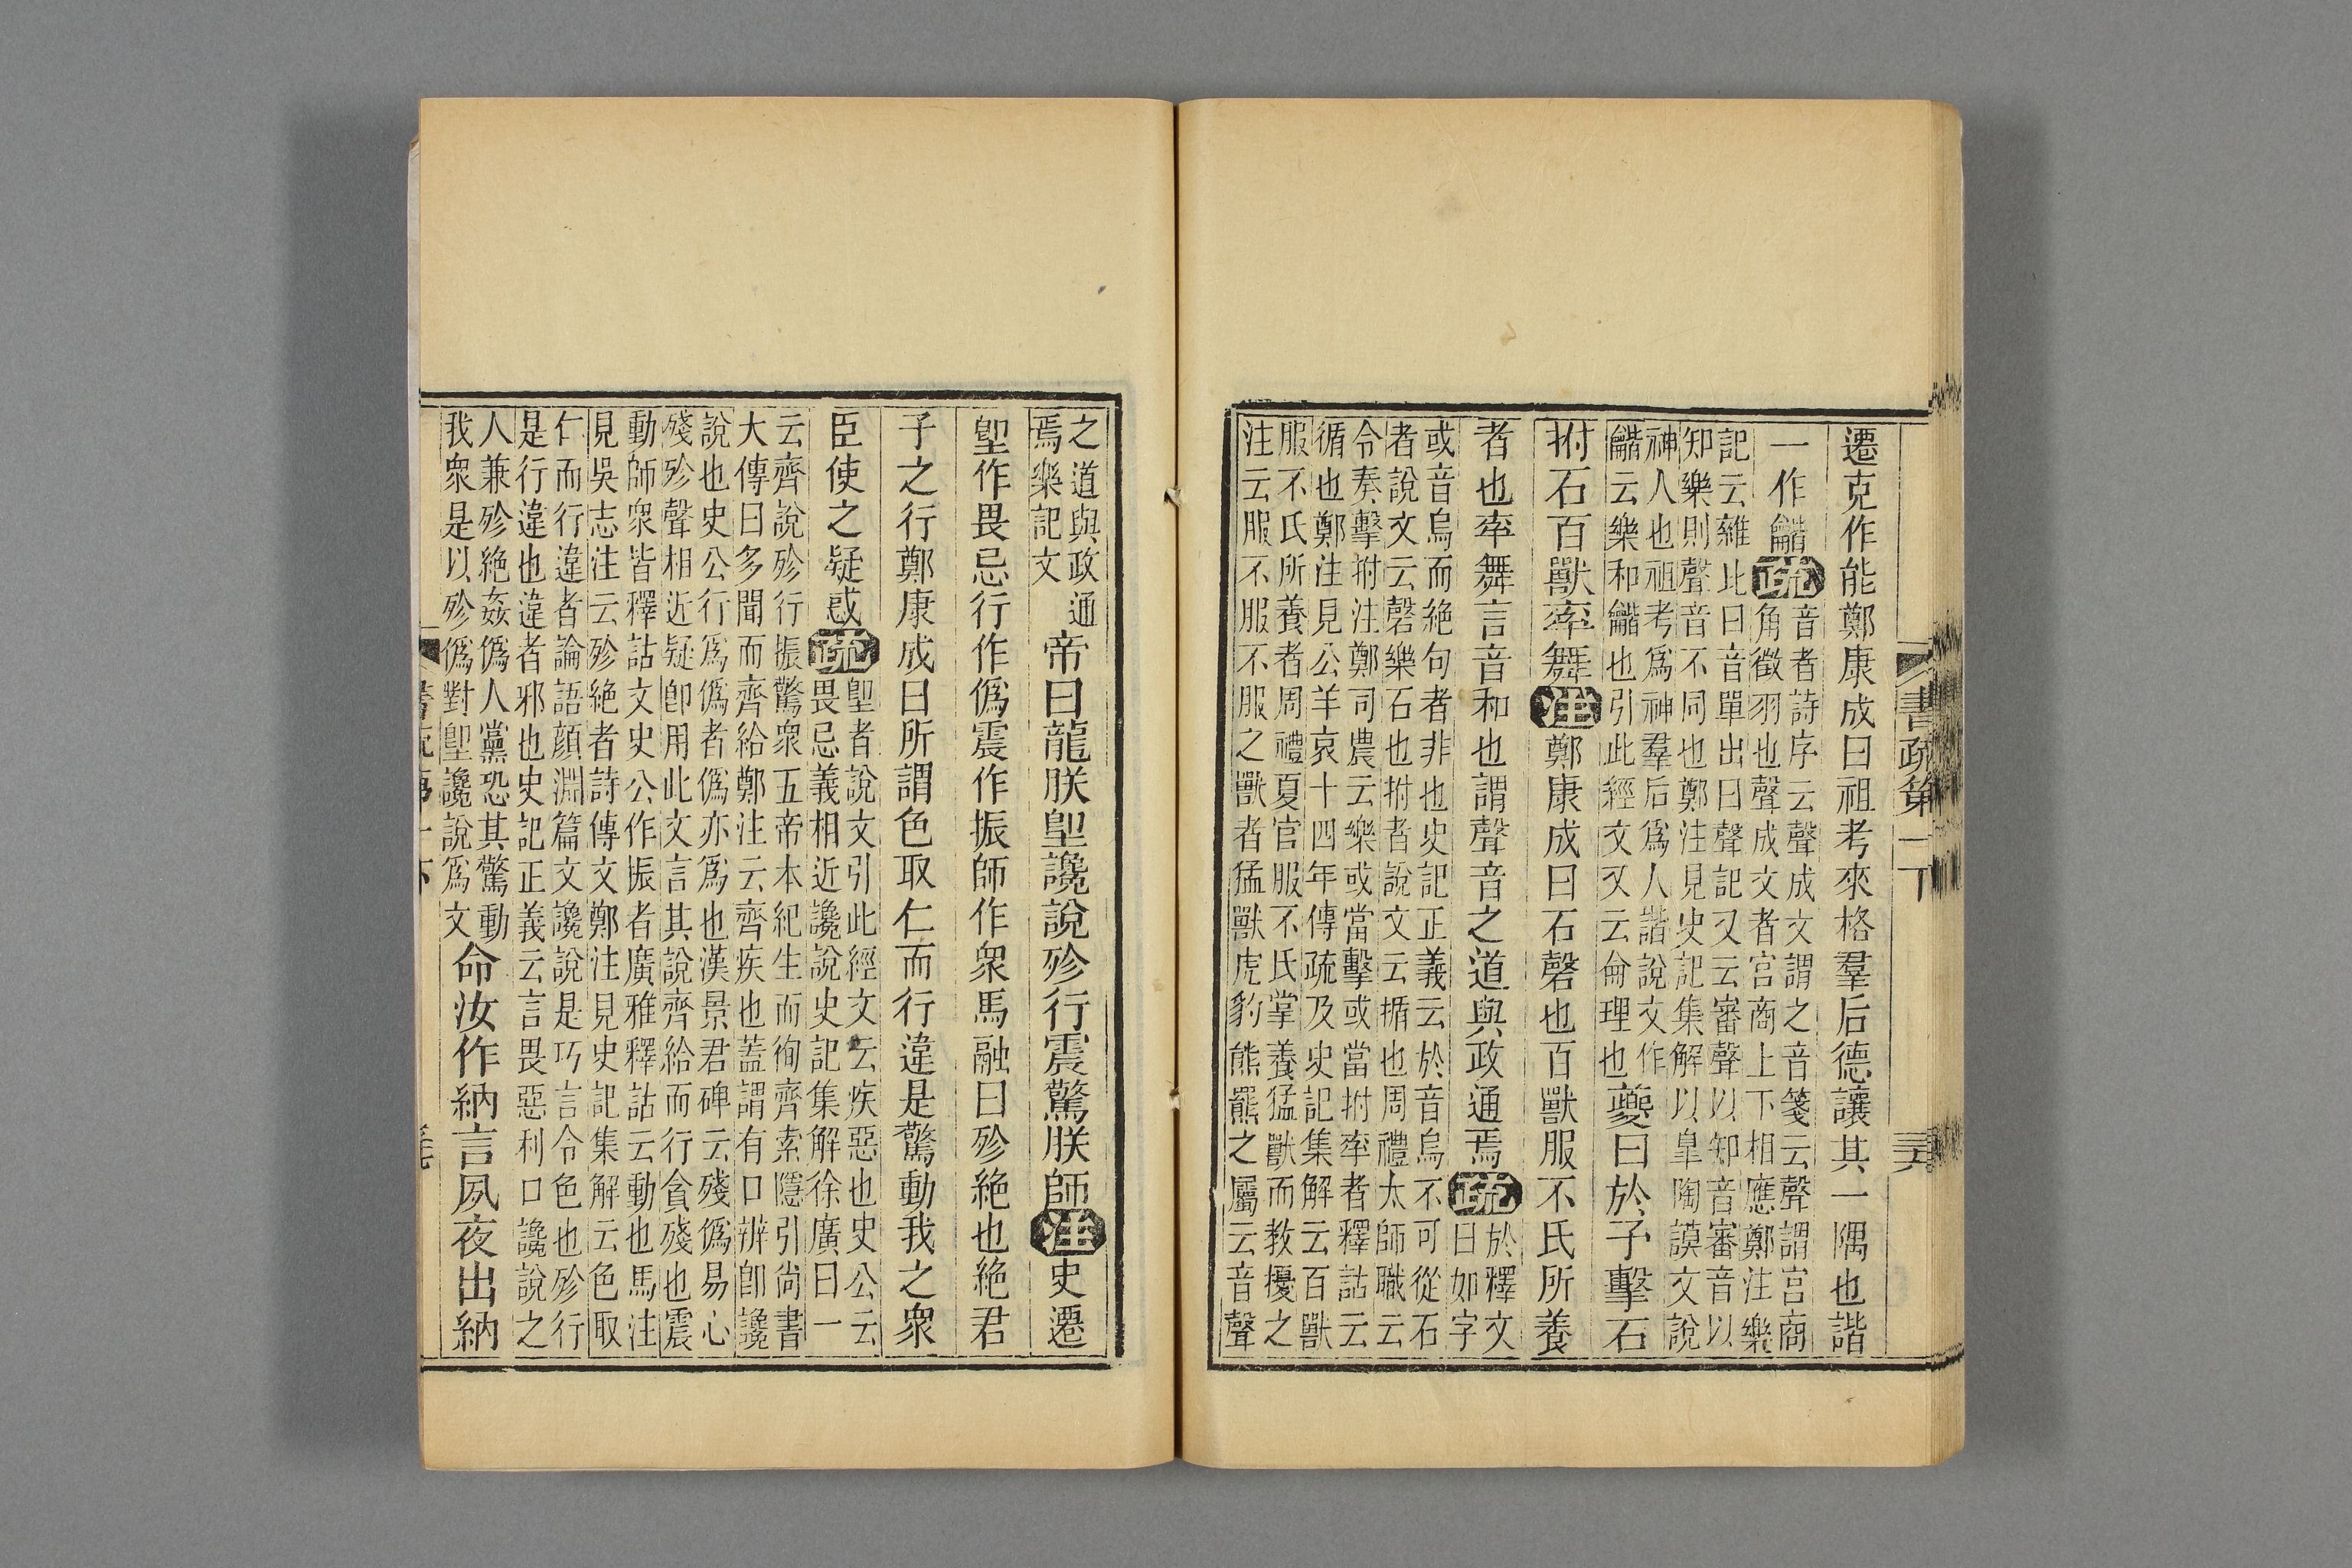 書疏第一下
遷克作能鄭康成曰祖考來格羣后德讓其一隅也諧
一作龤疏
音者詩序云聲成文謂之音箋云聲謂宮商
角徵羽也聲成文者宮商上下相應鄭注樂
記云雜比曰音單出曰聲記又云審聲以知音審音以
知樂則聲音不同也鄭注見史記集解以皐陶謨文說
神人也祖考爲神羣后爲人諧說文作
龤云樂和龤也引此經文又云侖理也
夔曰於予擊石
拊石百獸率舞注鄭康成曰石磬也百獸服不氏所養
者也率舞言音和也謂聲音之道與政通焉疏
於釋文
曰如字
或音烏而絶句者非也史記正義云於音烏不可從石
者說文云磬樂石也拊者說文云揗也周禮太師職云
令奏擊拊注鄭司農云樂或當擊或當拊率者釋詁云
循也鄭注見公羊哀十四年傳疏及史記集解云百獸
服不氏所養者周禮夏官服不氏掌養猛獸而教擾之
注云服不服不服之獸者猛獸虎豹熊羆之屬云音聲
之道與政通
焉樂記文
帝曰龍朕堲讒說殄行震驚朕師注史遷
堲作畏忌行作僞震作振師作衆馬融曰殄絶也絶君
子之行鄭康成曰所謂色取仁而行違是驚動我之衆
臣使之疑惑疏
堲者說文引此經文云疾惡也史公云
畏忌義相近讒說史記集解徐廣曰一
云齊說殄行振驚衆五帝本紀生而徇齊索隱引尚書
大傳曰多聞而齊給鄭注云齊疾也蓋謂有口辨卽讒
說也史公行爲僞者僞亦爲也漢景君碑云殘僞易心
殘殄聲相近疑卽用此文言其說齊給而行貪殘也震
動師衆皆釋詁文史公作振者廣雅釋詁云動也馬注
見吳志注云殄絶者詩傳文鄭注見史記集解云色取
仁而行違者論語顏淵篇文讒說是巧言令色也殄行
是行違也違者邪也史記正義云言畏惡利口讒說之
人兼殄絶姦僞人黨恐其驚動
我衆是以殄僞對堲讒說爲文
命汝作納言夙夜出納